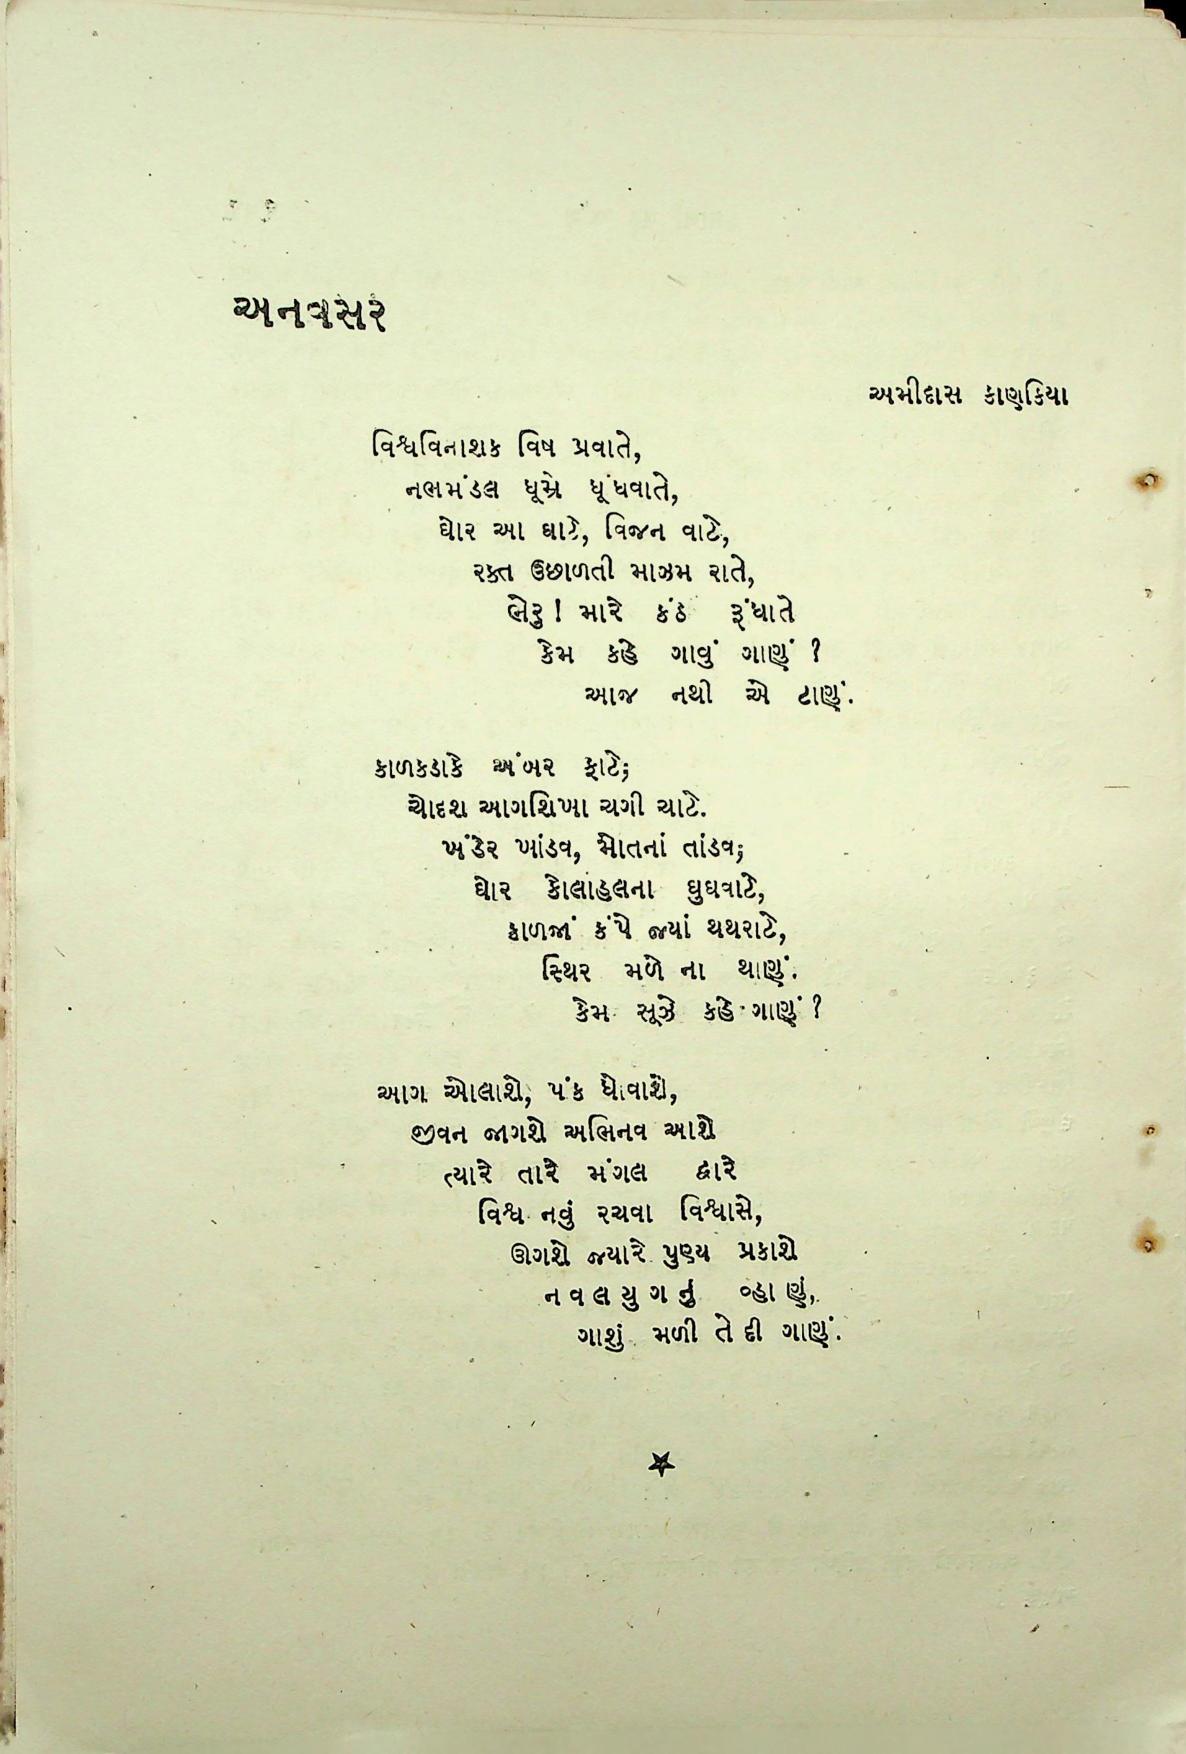 અનવસર
અમીદાસ કાણકિયા
વિશ્વવિનાશક વિષ પ્રવાતે,
નભમંડલ ધૂમ્રે ધૂંધવાતે,
ઘોર આ ઘાટે, વિજન વાટે,
રક્ત ઉછાળતી માઝમ રાતે,
ભેરુ! મારે કંઠ રૂંધાતે
કેમ કહે ગાવું ગાણું ?
આજ નથી એ ટાણું.
કાળકડાકે અંબર ફાટે;
ચોદશ આગશિખા ચગી ચાટે.
ખંડેર ખાંડવ, મોતનાં તાંડવ;
ઘોર કોલાહલના ઘુઘવાટે,
કાળજાં કંપે જ્યાં થથરાટે,
સ્થિર મળે ના થાણું.
કેમ સૂઝે કહે ગાણું ?
આગ ઓલાશે, પંક ધોવાશે,
જીવન જાગશે અભિનવ આશે
ત્યારે તારે મંગલ દ્વારે
વિશ્વ નવું રચવા વિશ્વાસે,
ઊગશે જ્યારે પુણ્ય પ્રકાશે
નવલયુગનું વ્હાણું,
ગાશું મળી તે દી ગાણું.